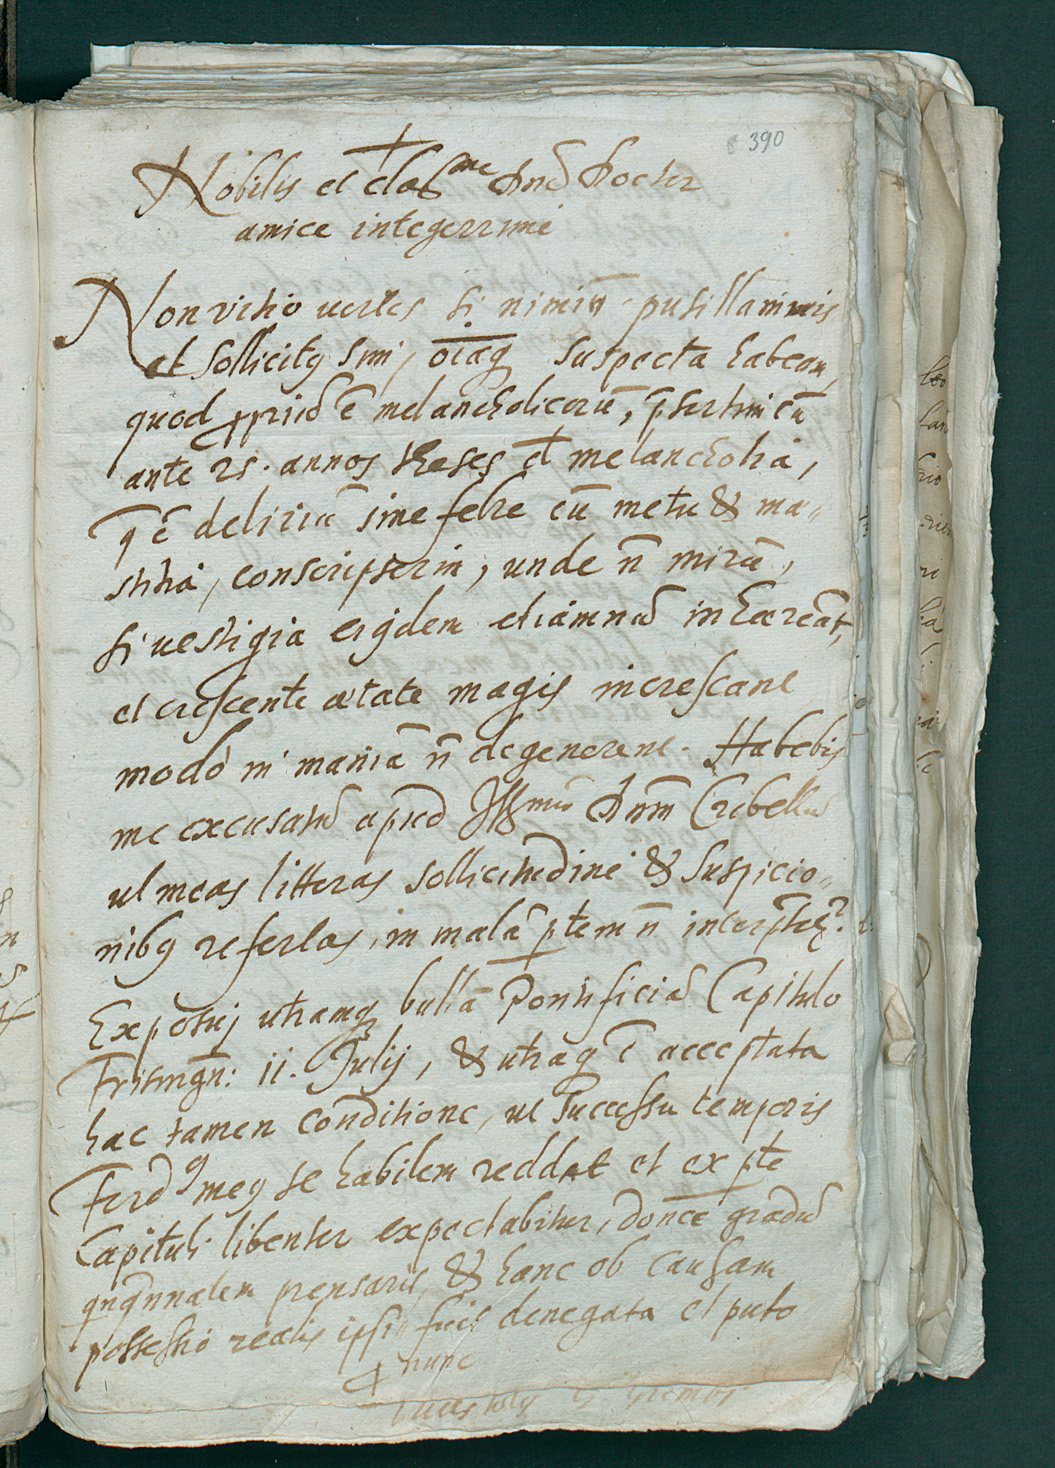 390
+
Nobilis et claß.me Dnē Doctor
amice integerrime
Non vitio vertes si nimiū pusillanimis
et sollicitꝰ sim, oīaqꝫ suspecta habeam,
quod ꝓpriū ē melancholicorū, p̄sertim cū
ante 25. annos theses d melancholia,
q̄ ē deliriū sine febre cū metu & mæ-
stitia, conscripserim, unde n̄ mirū,
si vestigia eiꝰdem etiamnū inhæreāt,
et crescente ætate magis increscant
modo in maniā n̄ degenerent. Habebis
me excusatū apud Illmū Dnm̄ Cribellū
ut meas litteras sollicitudine & suspicio-
nibꝰ refertas, in malā ꝑtem n̄ interp̄tet?
Exposui utramqꝫ bullā Pontificiā Capitulo
Frisingn: 11. Julij, & utraqꝫ ē acceptata
hac tamen conditione, ut successu temporis
Ferdꝰ meꝰ se habilem reddat et ex ꝑte
Capituli libenter expectabitur, donec gradū
quinqūnalem prensarit, & hanc ob causam
possessio realis ipsi fuit denegata et puto
ꝓ nunc